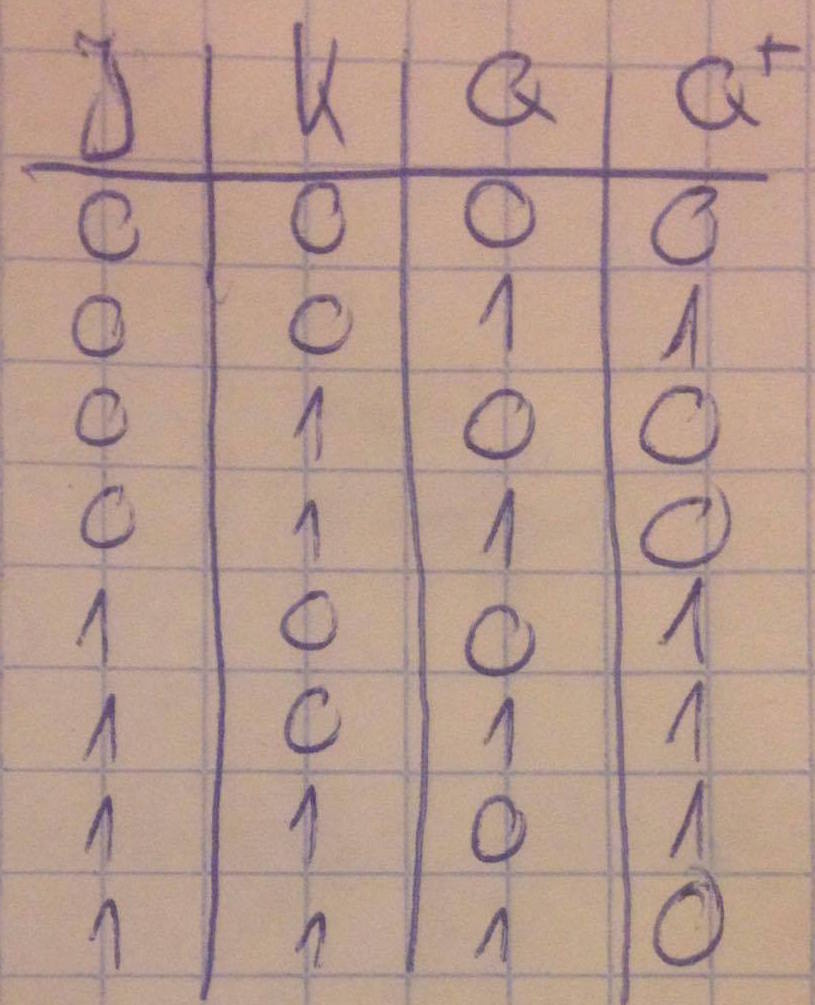 J K Q Q+
0 0 0 0
0 0 1 1
0 1 0 0
0 1 1 0
1 0 0 1
1 0 1 1
1 1 0 1
1 1 1 0